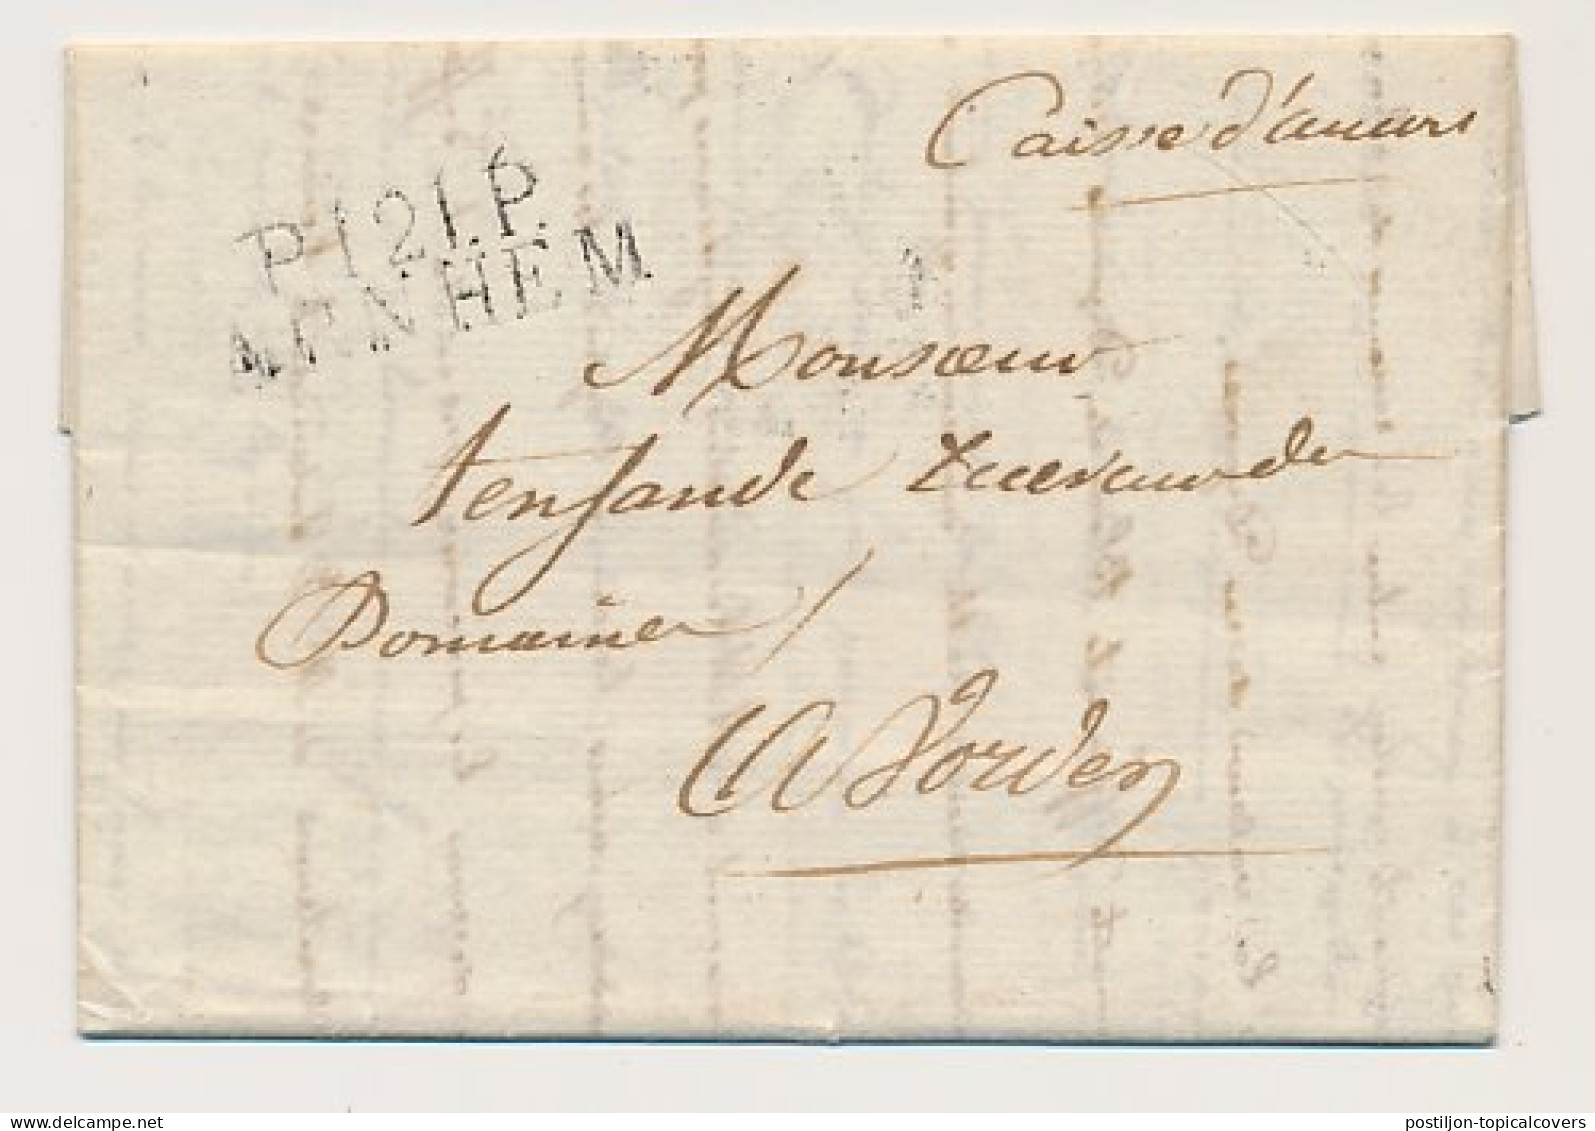 Caisse d'amort
P.121.P.
ARNHEM
Monsieur
tenhande receveur der
Domaines
A Vorden
delcampe.net
postiljon-topicalcovers